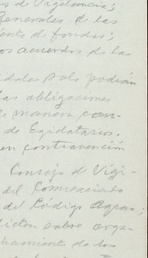 de Vigilancia;
Generales de las
ento de fondos;
os acuerdos de las
idales solo podrán
las obligaciones
e manera con-
de Egidatarios.
en contravención
Consejo de Vigi-
del Comisariado
del Código Agrario;
sobre orga-
chamiento de los